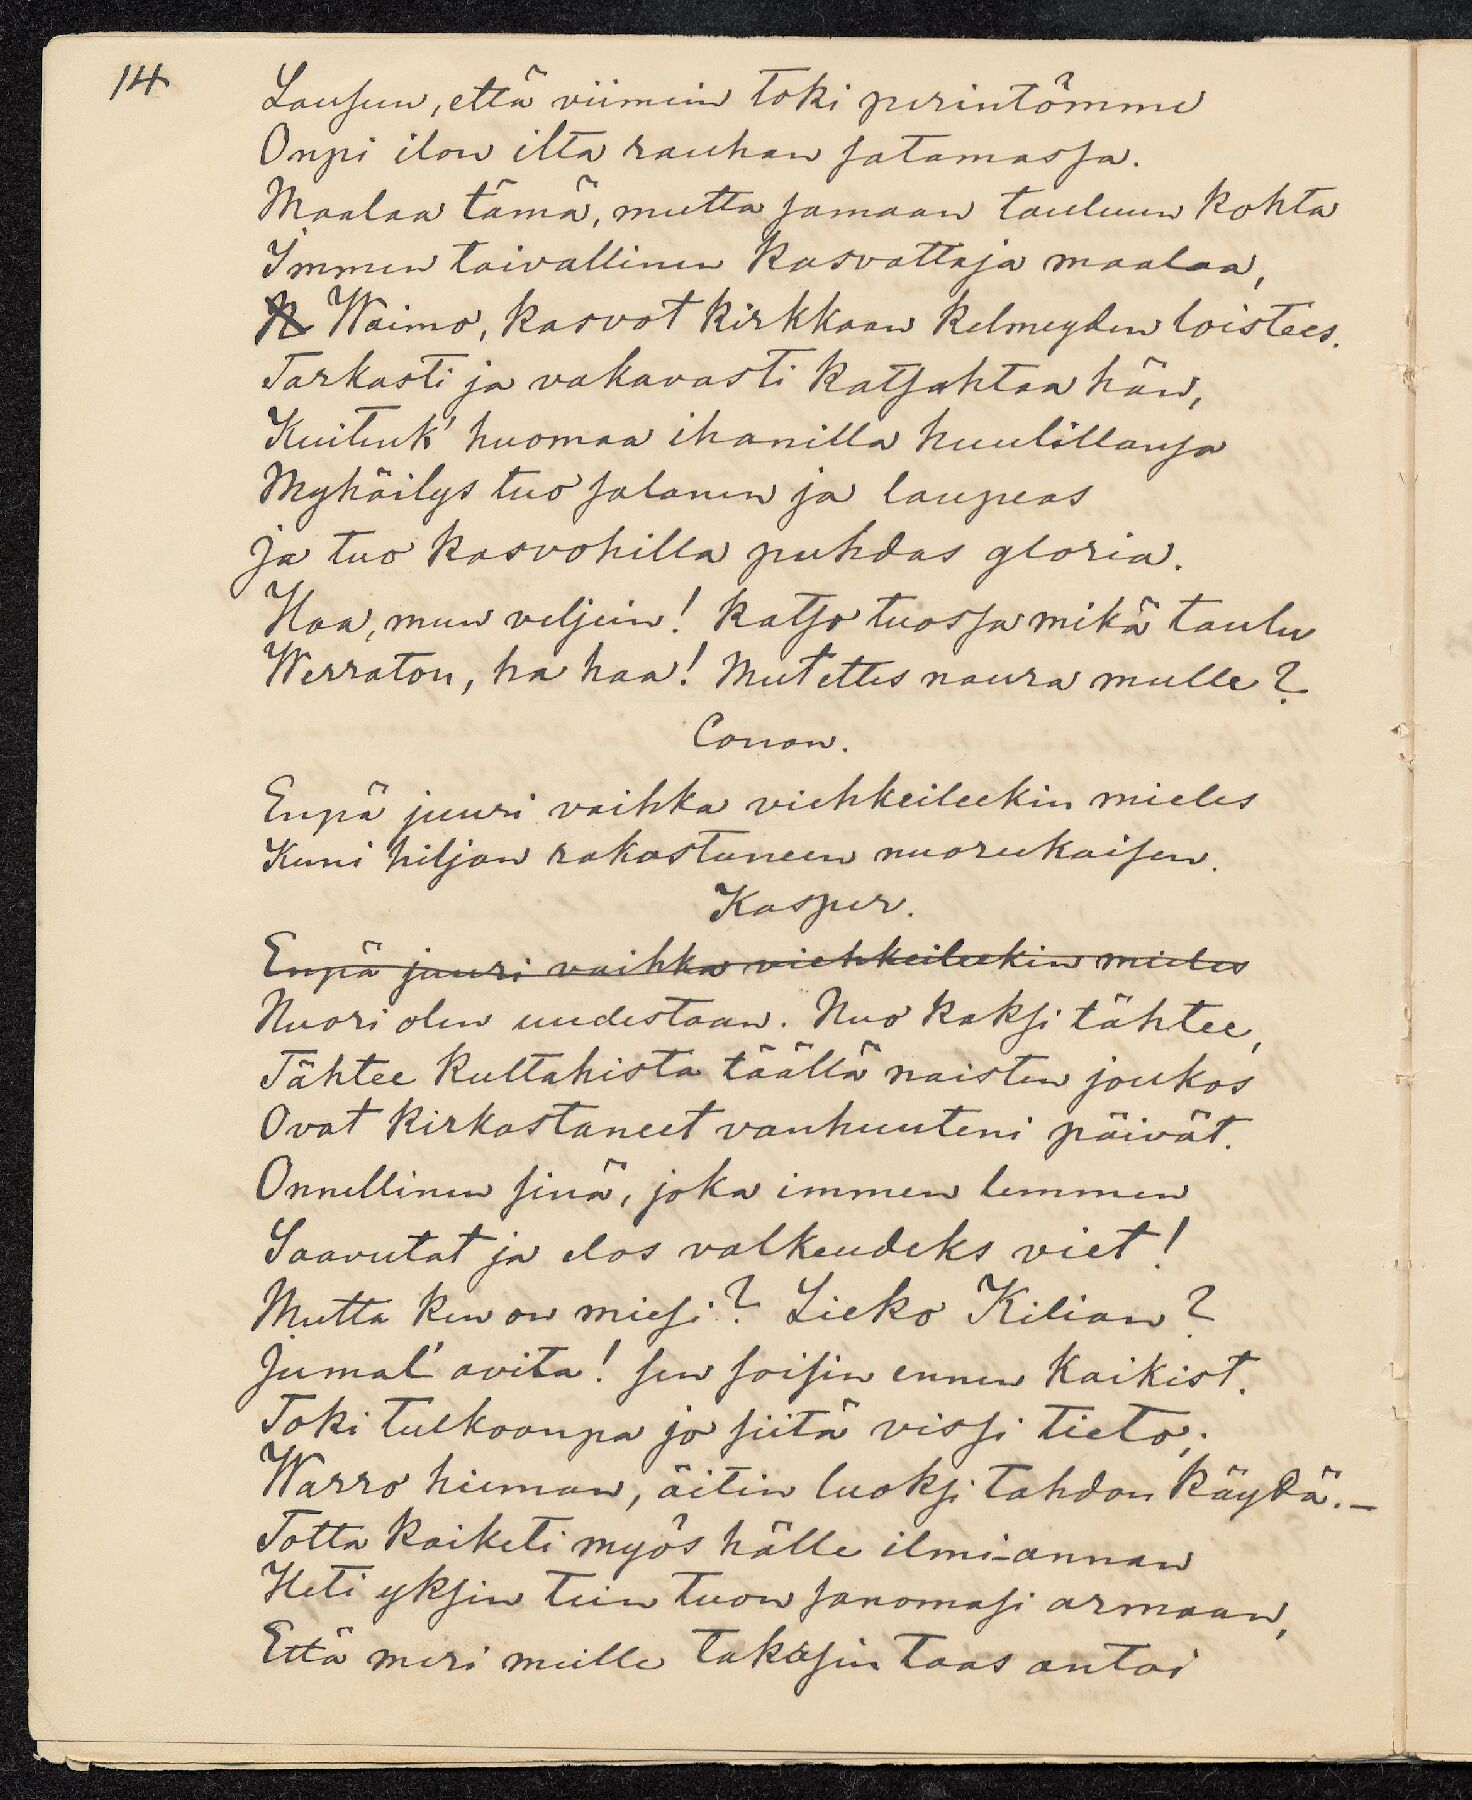 14
Lausun, että viimein toki perintömme
Onpi ilon ilta rauhan satamassa.
Maalaa tämä, mutta samaan tauluun kohta
Immen taivallinen kasvattaja maalaa,
Waimo, kasvot kirkkaan kelmeyden loistees.
Tarkasti ja vakavasti katsahtaa hän,
Kuitenk' huomaa ihanilla huulillansa
Myhäilys tuo salanen ja laupeas
ja tuo kasvohilla puhdas gloria.
Haa, mun veljein! katso tuossa mikä taulu
Werraton, ha haa! Mut ettes naura mulle?
Conon.
Enpä juuri vaihka viehkeileekin mieles
Kuni hiljan rakastuneen nuorukaisen.
Kasper.
Enpä juuri vaihka viehkeileekin mieles
Nuori olen uudestaan. Nuo kaksi tähtee,
Tähtee kultahista täällä naisten joukos
Ovat kirkastaneet vanhuuteni päivät.
Onnellinen sinä, joka immen lemmen
Saavutat ja elos valkeudeks viet!
Mutta ken on miesi? Lieko Kilian?
Jumal' avita! sen soisin ennen kaikist.
Toki tulkoonpa jo siitä vissi tieto;
Warro hieman, äitin luoksi tahdon käydä.–
Totta kaiketi myös hälle ilmi-annan
Heti yksin tein tuon sanomasi armaan,
Että meri meille takasin taas antoi